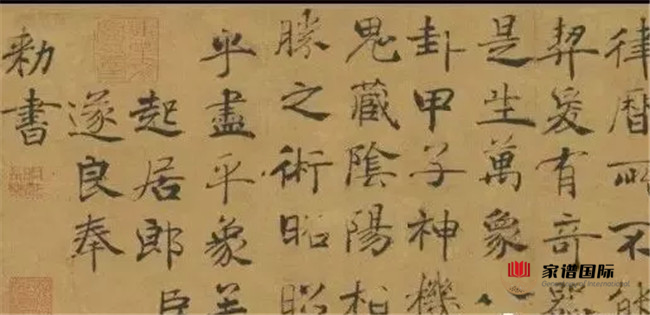 律曆所不能
契爰有奇器
是生萬象八
卦甲子神機
鬼藏陰陽相
勝之術昭昭
乎盡乎象
起居郎臣
遂良奉
勑書
家谱国际
International